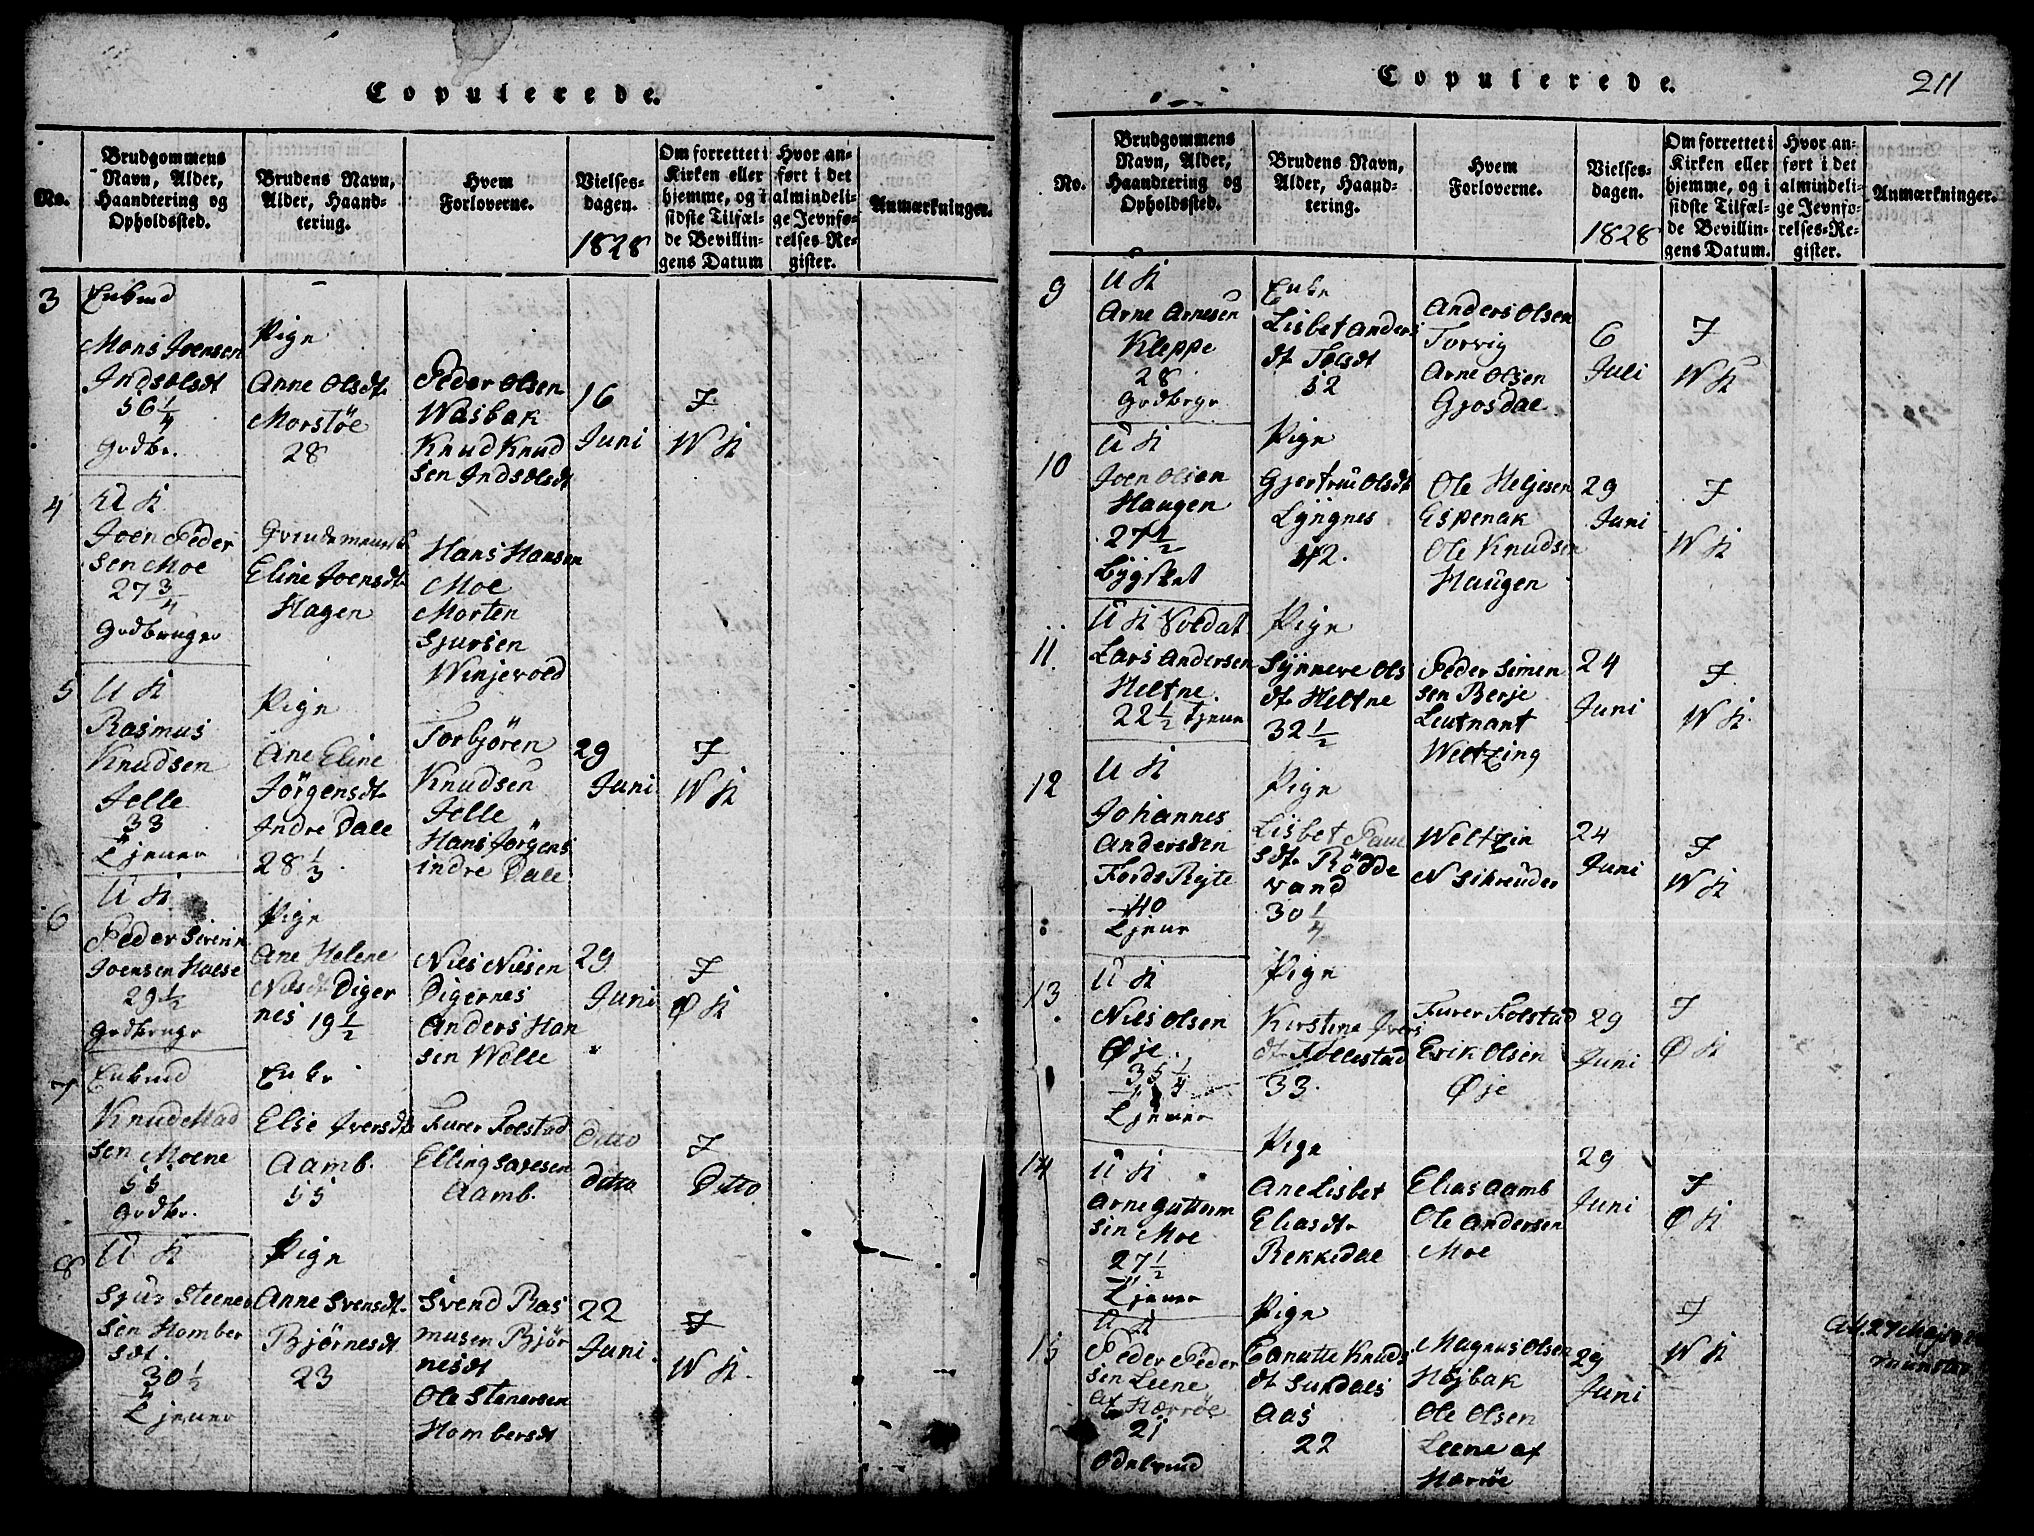 Copulerede.
No.
Brudgommens
Navn, Alder,
Haandtering og
Opholdssted.
Brudens Navn,
Alder, Haand-
tering.
Hvem
Forloverne.
Vielses-
dagen.
1828
Om forrettet i
Kirken eller
hjemme, og i
sidste Tilfæl-
de Bevillin-
gens Datum
Hvor an-
ført i det
almindeli-
ge Jevnfø-
relses-Re-
gister.
Anmærkninger.
3
Enkmd
Mons Joensen
Indsölsdt
56 1/4
Grdbr.
Pige
Anne Olsdt
Morstöe
28
Peder Olsen
Wasbak
Knud Knud
sen Indsölsdt
16
Juni
F
W K
4
U K
Joen Peder
sen Moe
27 3/4
Grdbruger
Eline Joensdt
Hagen
Hans Hansen
Moe
Morten
Sjursen
Winjevold
5
U K
Rasmus
Knudsen
Jelle
33
Tjener
Pige
Ane Eline
Jörgensdt
Indre Dale
28 1/3
Torbjören
Knudsen
Jelle
Hans Jörgens
indre Dale
29
Juni
F
W K
6
U K
Peder Severin
Joensen Huse
29 1/2
Grdbrugr
Pige
Ane Helene
Nilsdt Diger
nes 19 1/2
Nils Nilsen
Digernes
Anders Han
sen Wolle
29
Juni
F
Ø K
7
Enkmd
Knud Mad
sen Moene
55
Grdbr.
Enke
Else Iversdt
Aamb.
55
Furer Folstad
Elling
Aamb.
Ditto
Ditto
F
Ditto
8
U K
Sjur Steener
sen Homber
sdt.
30 1/2
Tjener
Pige
Anne Svensdt
Björnesdt
23
Svend Ras
musen Björ
nesdt
Ole Stenersen
Hombersdt
22
Juni
F
W K.
Copulerede.
211
No.
Brudgommens
Navn, Alder,
Haandtering og
Opholdssted.
Brudens Navn,
Alder, Haand-
tering.
Hvem
Forloverne.
Vielses-
dagen.
1828
Om forrettet i
Kirken eller
hjemme, og i
sidste Tilfæl-
de Bevillin-
gens Datum.
Hvor an-
ført i det
almindeli-
ge Jevnfø-
relses-Re-
gister.
Anmærkninger.
9
U K
Arne Arnesen
Kleppe
28
Grdbrgr
Enke
Lisbet Anders
dt
52
Anders Olsen
Torvig
Arne Olsen
Gjosdal
6
Juli
F
W K
10
U K
Joen Olsen
Haugen
27 1/2
Pige
Gjertrue Olsdt
Lyngnes
42.
Ole Heljesen
Espenak
Ole Knudsen
Haugen
29
Juni
F
W K
11
U K Soldat
Lars Andersen
Heltne
22 1/2 Tjener
Pige
Synneve Ols
dt Heltne
32 1/2
Peder Simen
sen Berje
Leutnant
Weltzing
24
Juni
F
W K
12
U K
Johannes
Andersden
Fords Röjte
40
Tjener
Pige
Lisbet Paul
sdt. Rödde
vand
30 1/4
Weltzin
N Schreuder
24
Juni
F
W K
13
U K
Nils Olsen
Øje
35 1/4
Tjener
Pige
Kirstine Ivers
dt Follestad
33.
Furer Folstad
Erik Olsen
Øje
29
Juni
F
Ø K
14
U K
Arne Guttorm
sen Moe
27 1/2
Tjener
Pige
Ane Lisbet
Eliasdt
Rekkedal
Elias Aamb
Ole Andersen
Moe
29
Juni
F
Ø K
15
U K
Peder Peder
sen Leene
af Hærröe
21
Pige
Canutte Knuds
dt Surdals
Aas
22
Magnus Olsen
Höjbak
Ole Olsen
Leene af
Harröe
29
Juni
F
W K